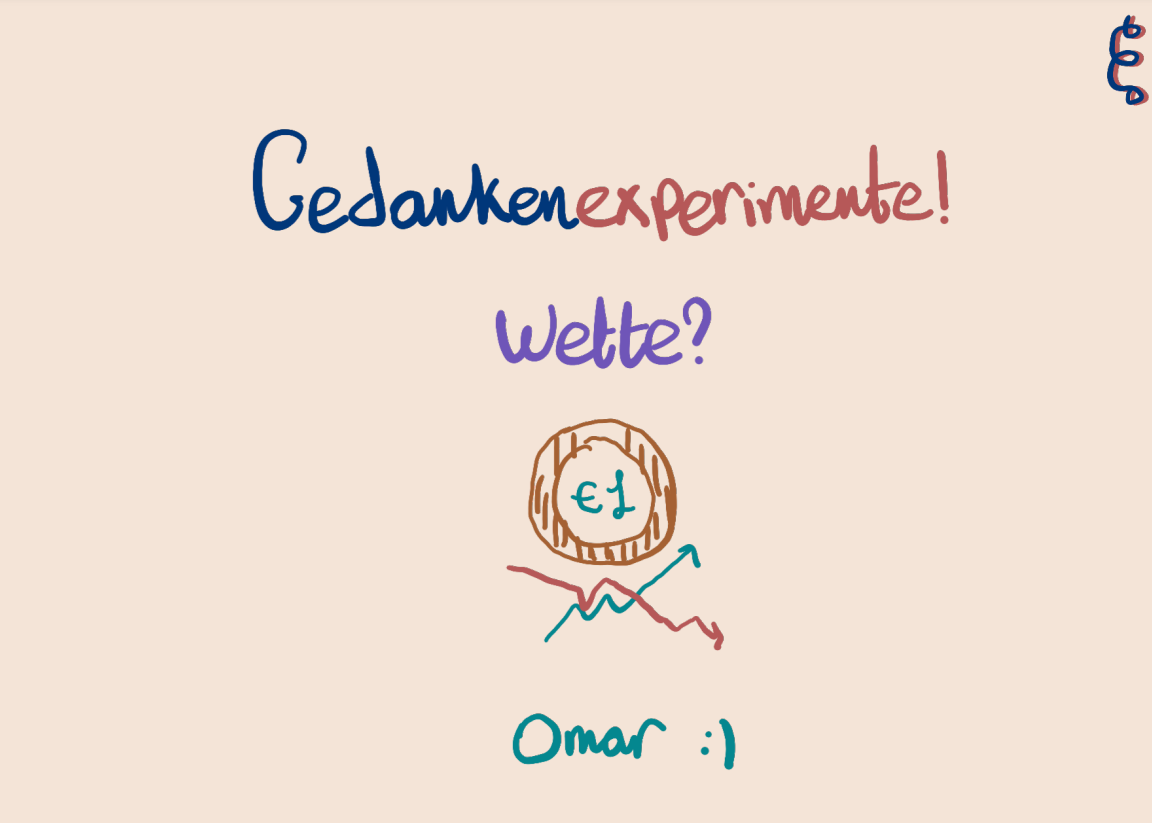 ξ
Gedankenexperimente!
Wette?
€1
Omar :)